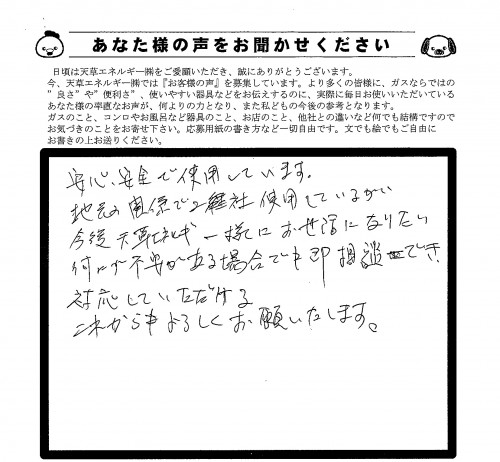 あなた様の声をお聞かせください
日頃は天草エネルギー㈱をご愛顧いただき、誠にありがとうございます。
今、天草エネルギー㈱では『お客様の声』を募集しています。より多くの皆様に、ガスならではの
”良さ”や”便利さ”、使いやすい器具などをお伝えするのに、実際に毎日お使いいただいている
あなた様の率直なお声が、何よりの力となり、また私どもの今後の参考となります。
ガスのこと、コンロやお風呂など器具のこと、お店のこと、他社との違いなど何でも結構ですので
お気づきのことをお寄せ下さい。応募用紙の書き方など一切自由です。文でも絵でもご自由に
お書きの上お送りください。
安心、安全で使用しています。
地元の関係で2社使用しているが
今後天草エネルギー様にお世話になりたい
何か不安がある場合でも即相談でき
対応していただける
これからもよろしくお願いいたします。